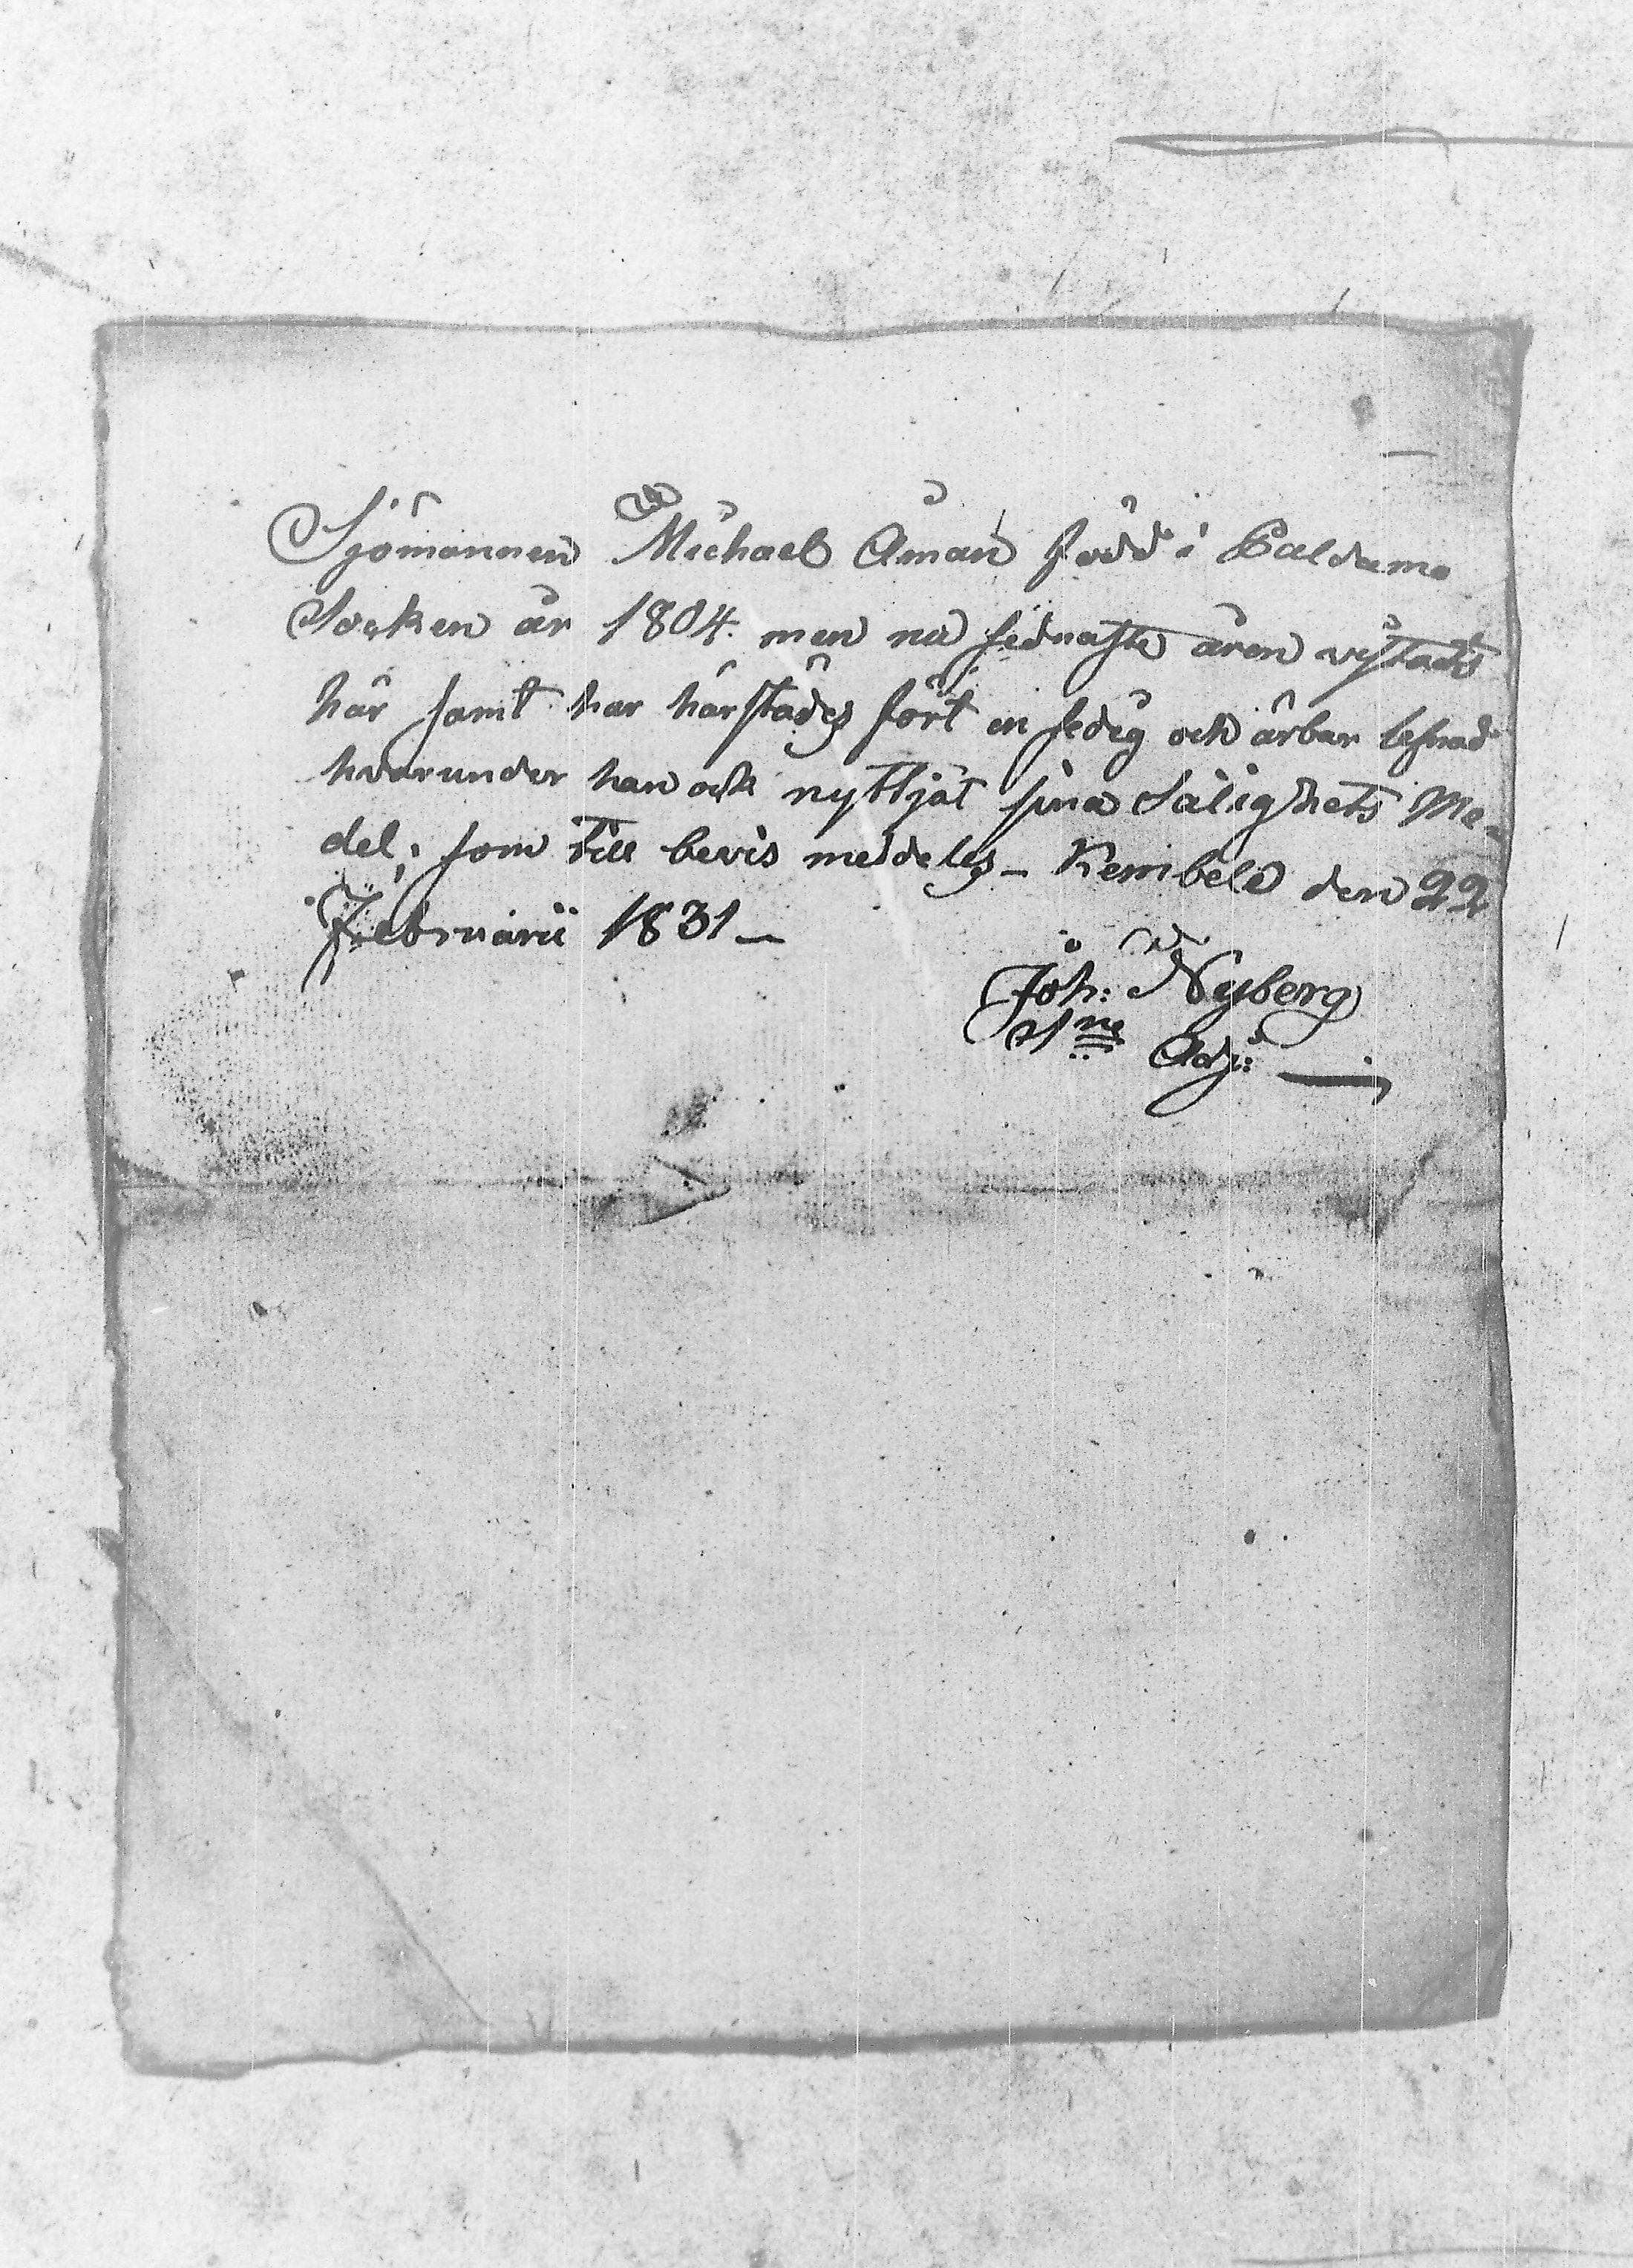 Sjömannen Michael Åman född i Paldamo
Socken år 1804. men nu sednaste åren vistads
här samt har härstädes fört en sedig och ärbar lefnad
hvarunder han ock nyttjat sina Salighets Me-
del; som till bevis meddeles – Kembele den 22
Februarii 1831 –
Joh: Nyberg
Adj: